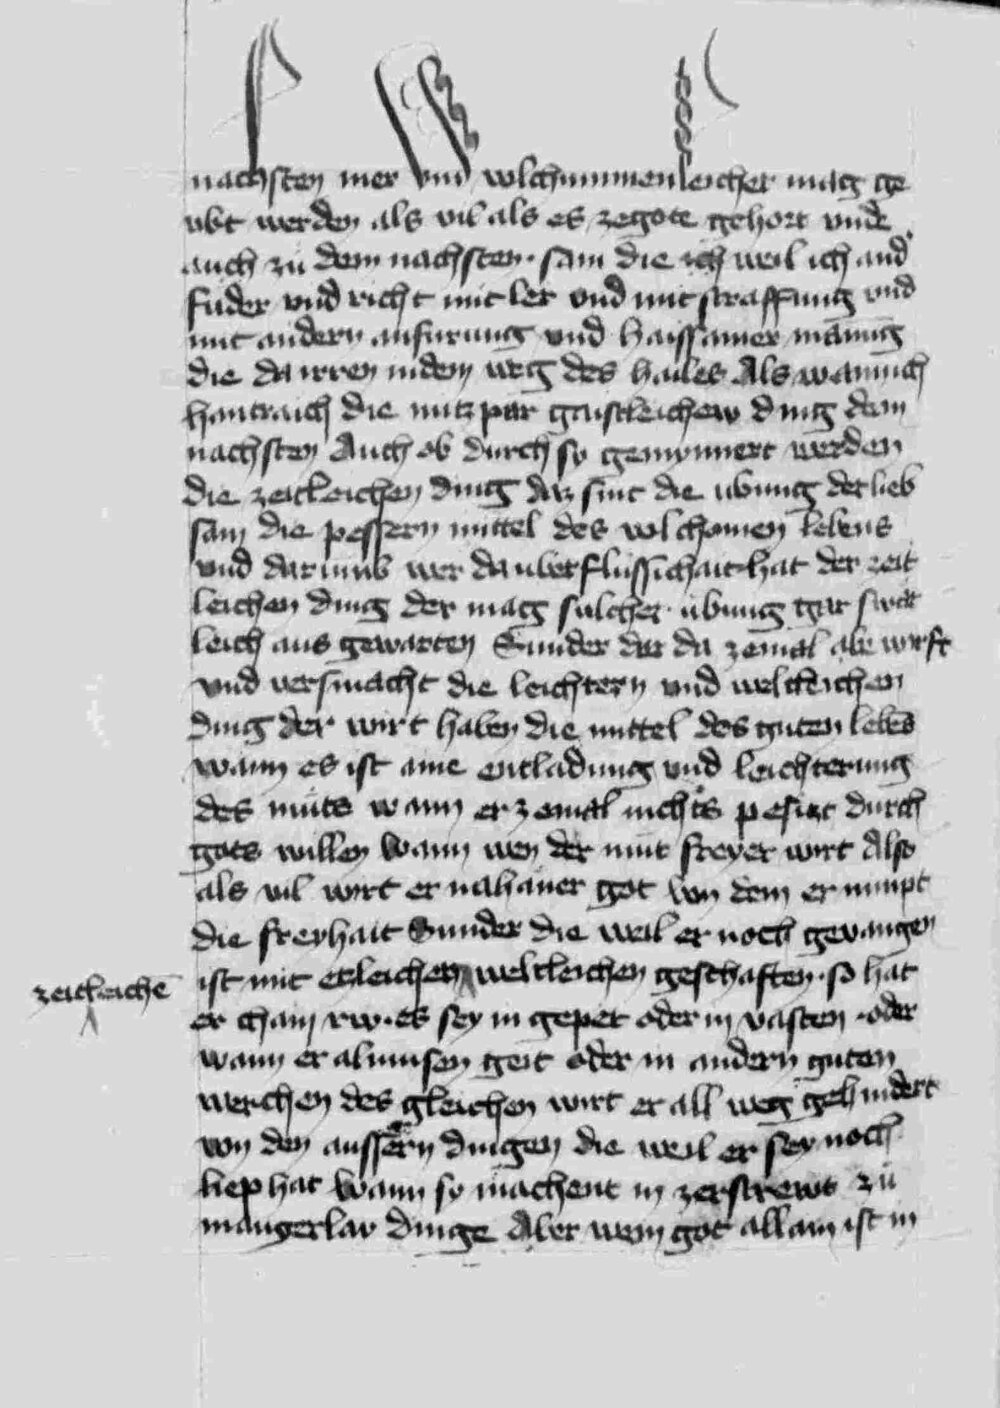 nachsten mer vnd volchummenleicher mag ge
vbt werden als vil als es zegote gehort vnde
auch zu dem nachsten. sam die ich weil ich and
fuder vnd richt mit ler vnd mit straffung vnd
mit andern anfurung vnd haissamer manung
die da irren in dem weg des hailes Als wann ich
hantraich die nutzpar geistleichew ding dem
nachsten Auch ob durch sy gemynnert werden
die zeitleichen ding daz sint die ubung der lieb
sam die pessern mittel des volchomen lebens
vnd darumb wer da vberflussichait hat der zeit
leichen ding der mag sulcher ubung gar swar
leich aus gewarten Sunder der da zemal abe wirft
vnd versmacht die leichtern vnd weltleichen
ding der wirt haben die mittel des guten lebens
wann es ist aine entladung vnd leichterung
des muts wann er zemal nichts pesizt durch
gots willen Wann wen der mut freyer wirt Also
als vil wirt er nahaner got von dem er nimpt
die freyhait Sunder die weil er noch gevangen
zeitleichē
ist mit erleichen weltleichen geschaften. so hat
er chain rw. es sey in gepet oder in vasten. oder
wann er almusen geit oder in andern guten
werchen des gleichen wirt er all weg gehindert
von den aussern dingen die weil er sey noch
liep hat Wann sy machent in zerstrewt zu
mangerlay dinge Aber wem got allain ist in